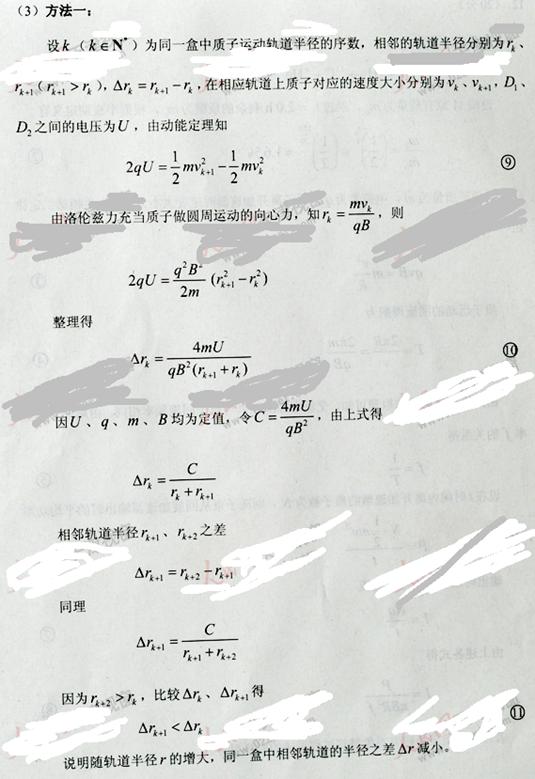 （3）方法一：
设k（k∈N*）为同一盒中质子运动轨道半径的序数，相邻的轨道半径分别为r_k、
r_{k+1}（r_{k+1}>r_k），Δr_k = r_{k+1} − r_k，在相应轨道上质子对应的速度大小分别为v_k、v_{k+1}，D₁、
D₂之间的电压为U，由动能定理知
2qU = \frac{1}{2}mv_{k+1}^2 − \frac{1}{2}mv_k^2 ⑨
由洛伦兹力充当质子做圆周运动的向心力，知r_k = \frac{mv_k}{qB}，则
2qU = \frac{q^2B^2}{2m}(r_{k+1}^2 − r_k^2)
整理得
Δr_k = \frac{4mU}{qB^2(r_{k+1} + r_k)} ⑩
因U、q、m、B均为定值，令C = \frac{4mU}{qB^2}，由上式得
Δr_k = \frac{C}{r_k + r_{k+1}}
相邻轨道半径r_{k+1}、r_{k+2}之差
Δr_{k+1} = r_{k+2} − r_{k+1}
同理
Δr_{k+1} = \frac{C}{r_{k+1} + r_{k+2}}
因为r_{k+2}>r_k，比较Δr_k、Δr_{k+1}得
Δr_{k+1} < Δr_k ⑪
说明随轨道半径r的增大，同一盒中相邻轨道的半径之差Δr减小。